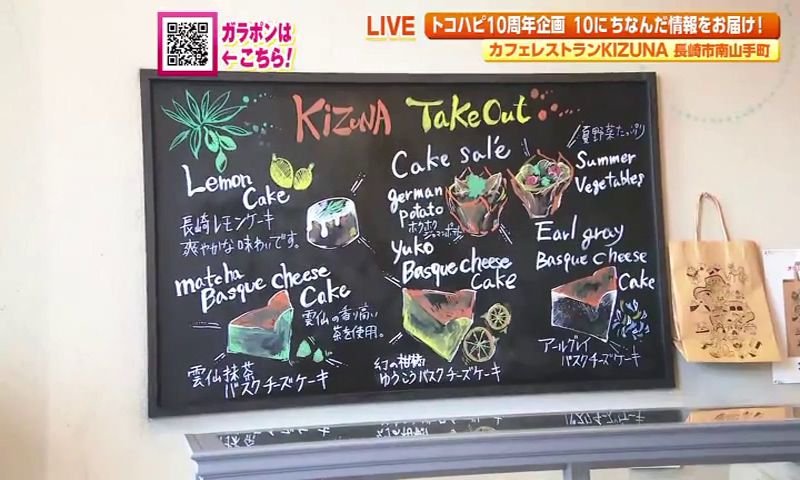 ガラポンは
←こちら!
LIVE
トコハピ10周年企画 10にちなんだ情報をお届け!
カフェレストランKIZUNA 長崎市南山手町
KiZUNA TakeOut
Lemon
Cake
長崎レモンケーキ
爽やかな味わいです。
Cake salé
german
Potato
ホクホク
ジャーマンポテト
夏野菜たっぷり
Summer
Vegetables
matcha
Basque cheese
Cake
雲仙の香り高い
茶を使用。
雲仙抹茶
バスクチーズケーキ
Yuko
Basque cheese
Cake
幻の柑橘
ゆうこうバスクチーズケーキ
Earl gray
Basque Cheese
Cake
アールグレイ
バスクチーズケーキ